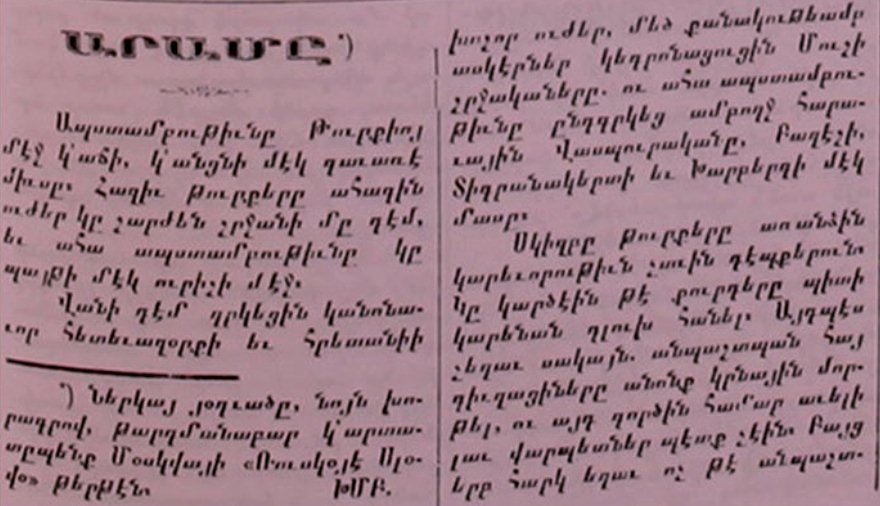 ԱՐԱՄԸ *)
Ապստամբութիւնը Թուրքիոյ
մէջ կ՚աճի, կ՚անցնի մէկ գաւառէ
միւսը։ Հազիւ թուրքերը ահագին
ուժեր կը շարժեն շրջանի մը դէմ,
եւ ահա ապստամբութիւնը կը
պայթի մէկ ուրիշի մէջ։
Վանի դէմ ղրկեցին կանոնա-
ւոր հետեւազօրքի եւ հրետանիի
*) Ներկայ յօդւածը, նոյն խո-
րագրով, թարգմանաբար կ՚արտա-
տըպենք Մօսկվայի «Ռուսկօյէ Սլօ-
վօ» թերթէն։ ԽՄԲ.
խոշոր ուժեր, մեծ քանակութեամբ
ասկէրներ կեդրոնացուցին Մուշի
շրջակաները. ու ահա ապստամբու-
թիւնը ընդգրկեց ամբողջ Հարա-
ւային Վասպուրականը, Բաղէշի,
Տիգրանակերտի եւ Խարբերդի մէկ
մասը։
Սկիզբը թուրքերը առանձին
կարեւորութիւն չտւին դէպքերուն։
Կը կարծէին թէ քուրդերը պիտի
կարենան գլուխ հանել։ Այդպէս
չեղաւ սակայն. անպաշտպան հայ
գիւղացիները անոնք կրնային մոր-
թել, ու այդ գործին համար աւելի
լաւ վարպետներ պէտք չէին։ Բայց
երբ հարկ եղաւ ոչ թէ անպաշտ-